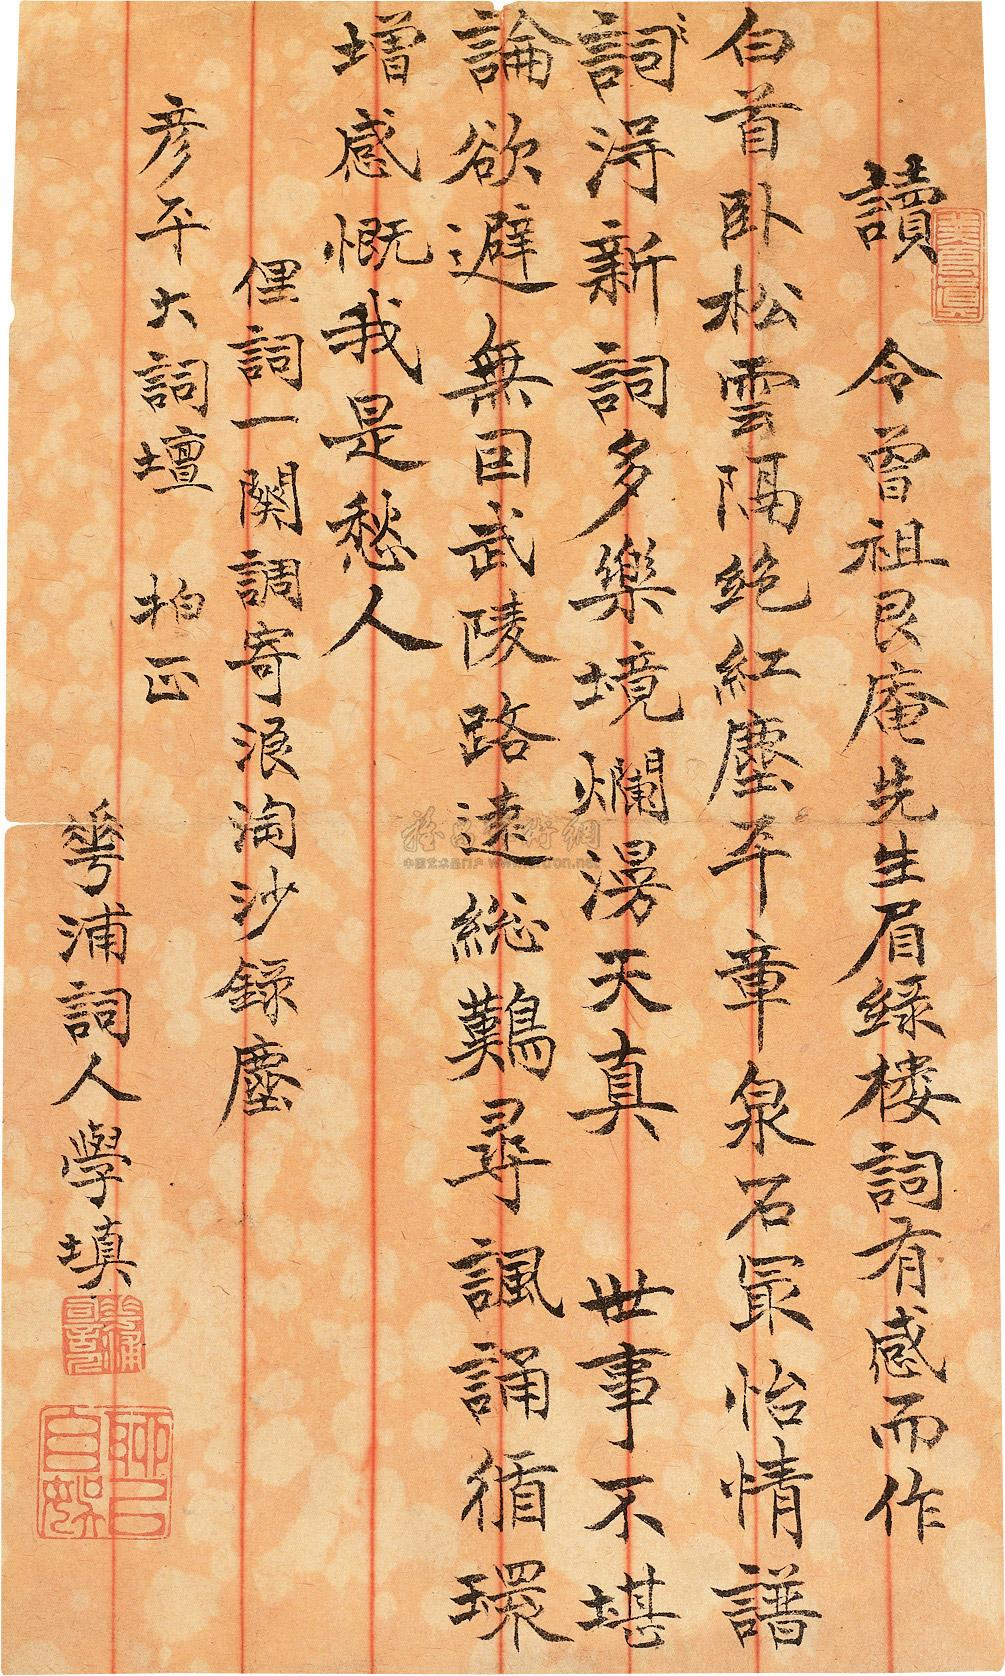 讀 令曾祖艮庵先生眉綠樓詞有感而作
白首卧松雲隔絶紅塵平章泉石冣怡情譜
詞淂新詞多樂境爛漫天真 世事不堪
論欲避無因武陵路遠総難尋諷誦循環
增感慨我是愁人
俚詞一闋調寄浪淘沙錄塵
彦平大詞壇 拍正
華浦詞人學填